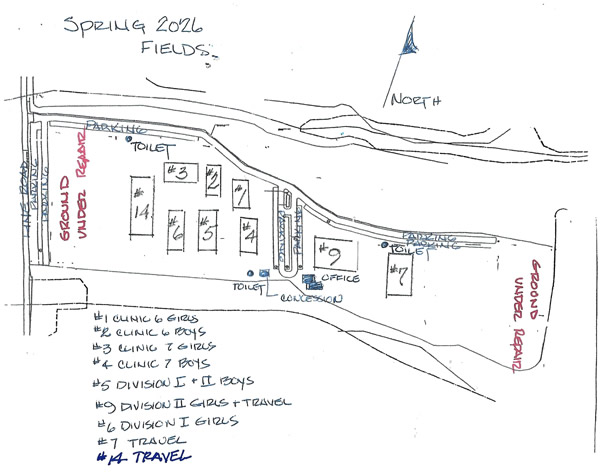 SPRING 2026
FIELDS
NORTH
PARKING
TOILET
LINE ROAD
PARKING
PARKING
GROUND
UNDER REPAIR
#14
#3
#2
#1
#6
#5
#4
PARKING
PARKING
#9
PARKING
PARKING
TOILET
#7
OFFICE
TOILET
CONCESSION
GROUND
UNDER REPAIR
#1 CLINIC 6 GIRLS
#2 CLINIC 6 BOYS
#3 CLINIC 7 GIRLS
#4 CLINIC 7 BOYS
#5 DIVISION I + II BOYS
#9 DIVISION II GIRLS + TRAVEL
#6 DIVISION I GIRLS
#7 TRAVEL
#14 TRAVEL